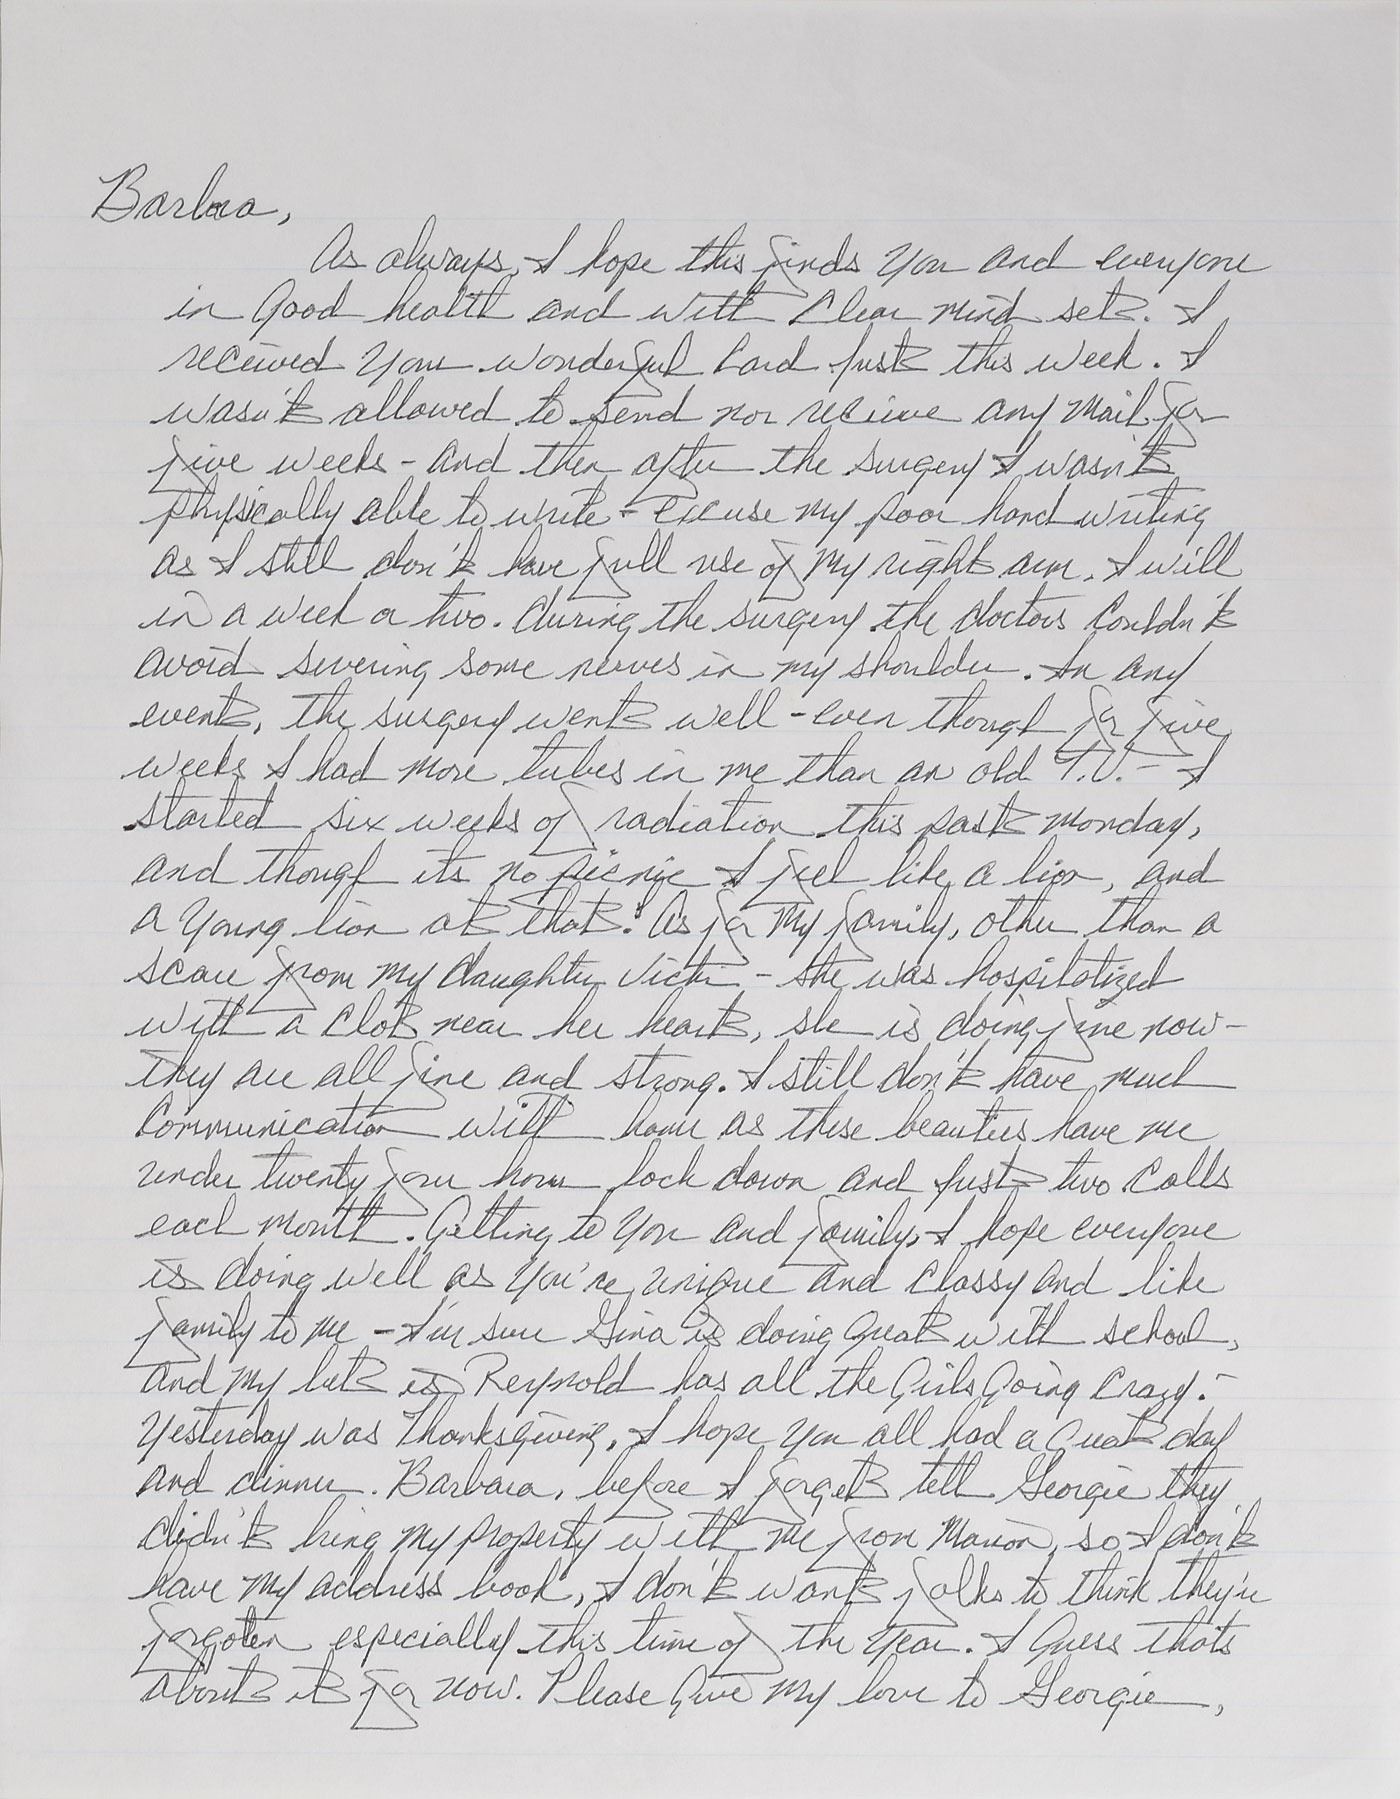 Barbara,
As always, I hope this finds you and everyone
in Good health and with Clear mind set. I
received your wonderful Card just this week. I
wasn't allowed to send nor recieve any mail for
five weeks - and then after the surgery I wasn't
physically able to write - excuse my poor hand writing
as I still don't have full use of my right arm, I will
in a week or two. During the surgery the doctors Couldn't
avoid severing some nerves in my shoulder. In any
event, the surgery went well - even though for five
weeks I had more tubes in me than an old T.V. - I
started six weeks of radiation this past monday,
and though its no picnic I feel like a lion, and
a Young lion at that! As for my family, other than a
scare from my daughter Vicki - she was hospitalized
with a Clot near her heart, she is doing fine now -
they are all fine and strong. I still don't have much
Communication with home as these beauties have me
under twenty four hour lock down and just two Calls
each month. Getting to You and family, I hope everyone
is doing well as You're unique and Classy and like
family to me - I'm sure Gina is doing Great with school,
and my bet is Reynold has all the Girls Going Crazy!
Yesterday was Thanksgiving, I hope you all had a Great day
and dinner. Barbara, before I forget tell Georgie they
didn't bring my property with me from Marion, so I don't
have my address book, I don't want folks to think they're
forgoten especially this time of the Year. I Guess thats
about it for now. Please Give my love to Georgie,